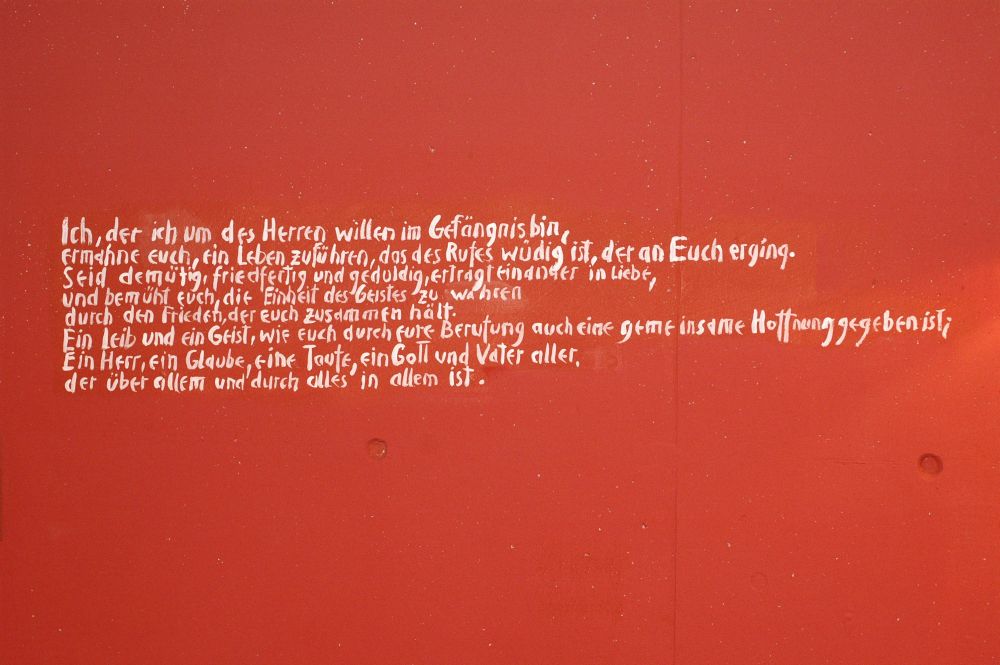 Ich, der ich um des Herren willen im Gefängnis bin,
ermahne euch, ein Leben zuführen, das des Rufes wüdig ist, der an Euch erging.
Seid demütig, friedfertig und geduldig, ertragt einander in Liebe,
und bemüht euch, die Einheit des Geistes zu wahren
durch den Frieden, der euch zusammen hält.
Ein Leib und ein Geist, wie euch durch eure Berufung auch eine gemeinsame Hoffnung gegeben ist;
Ein Herr, ein Glaube, eine Taufe, ein Gott und Vater aller,
der über allem und durch alles in allem ist.